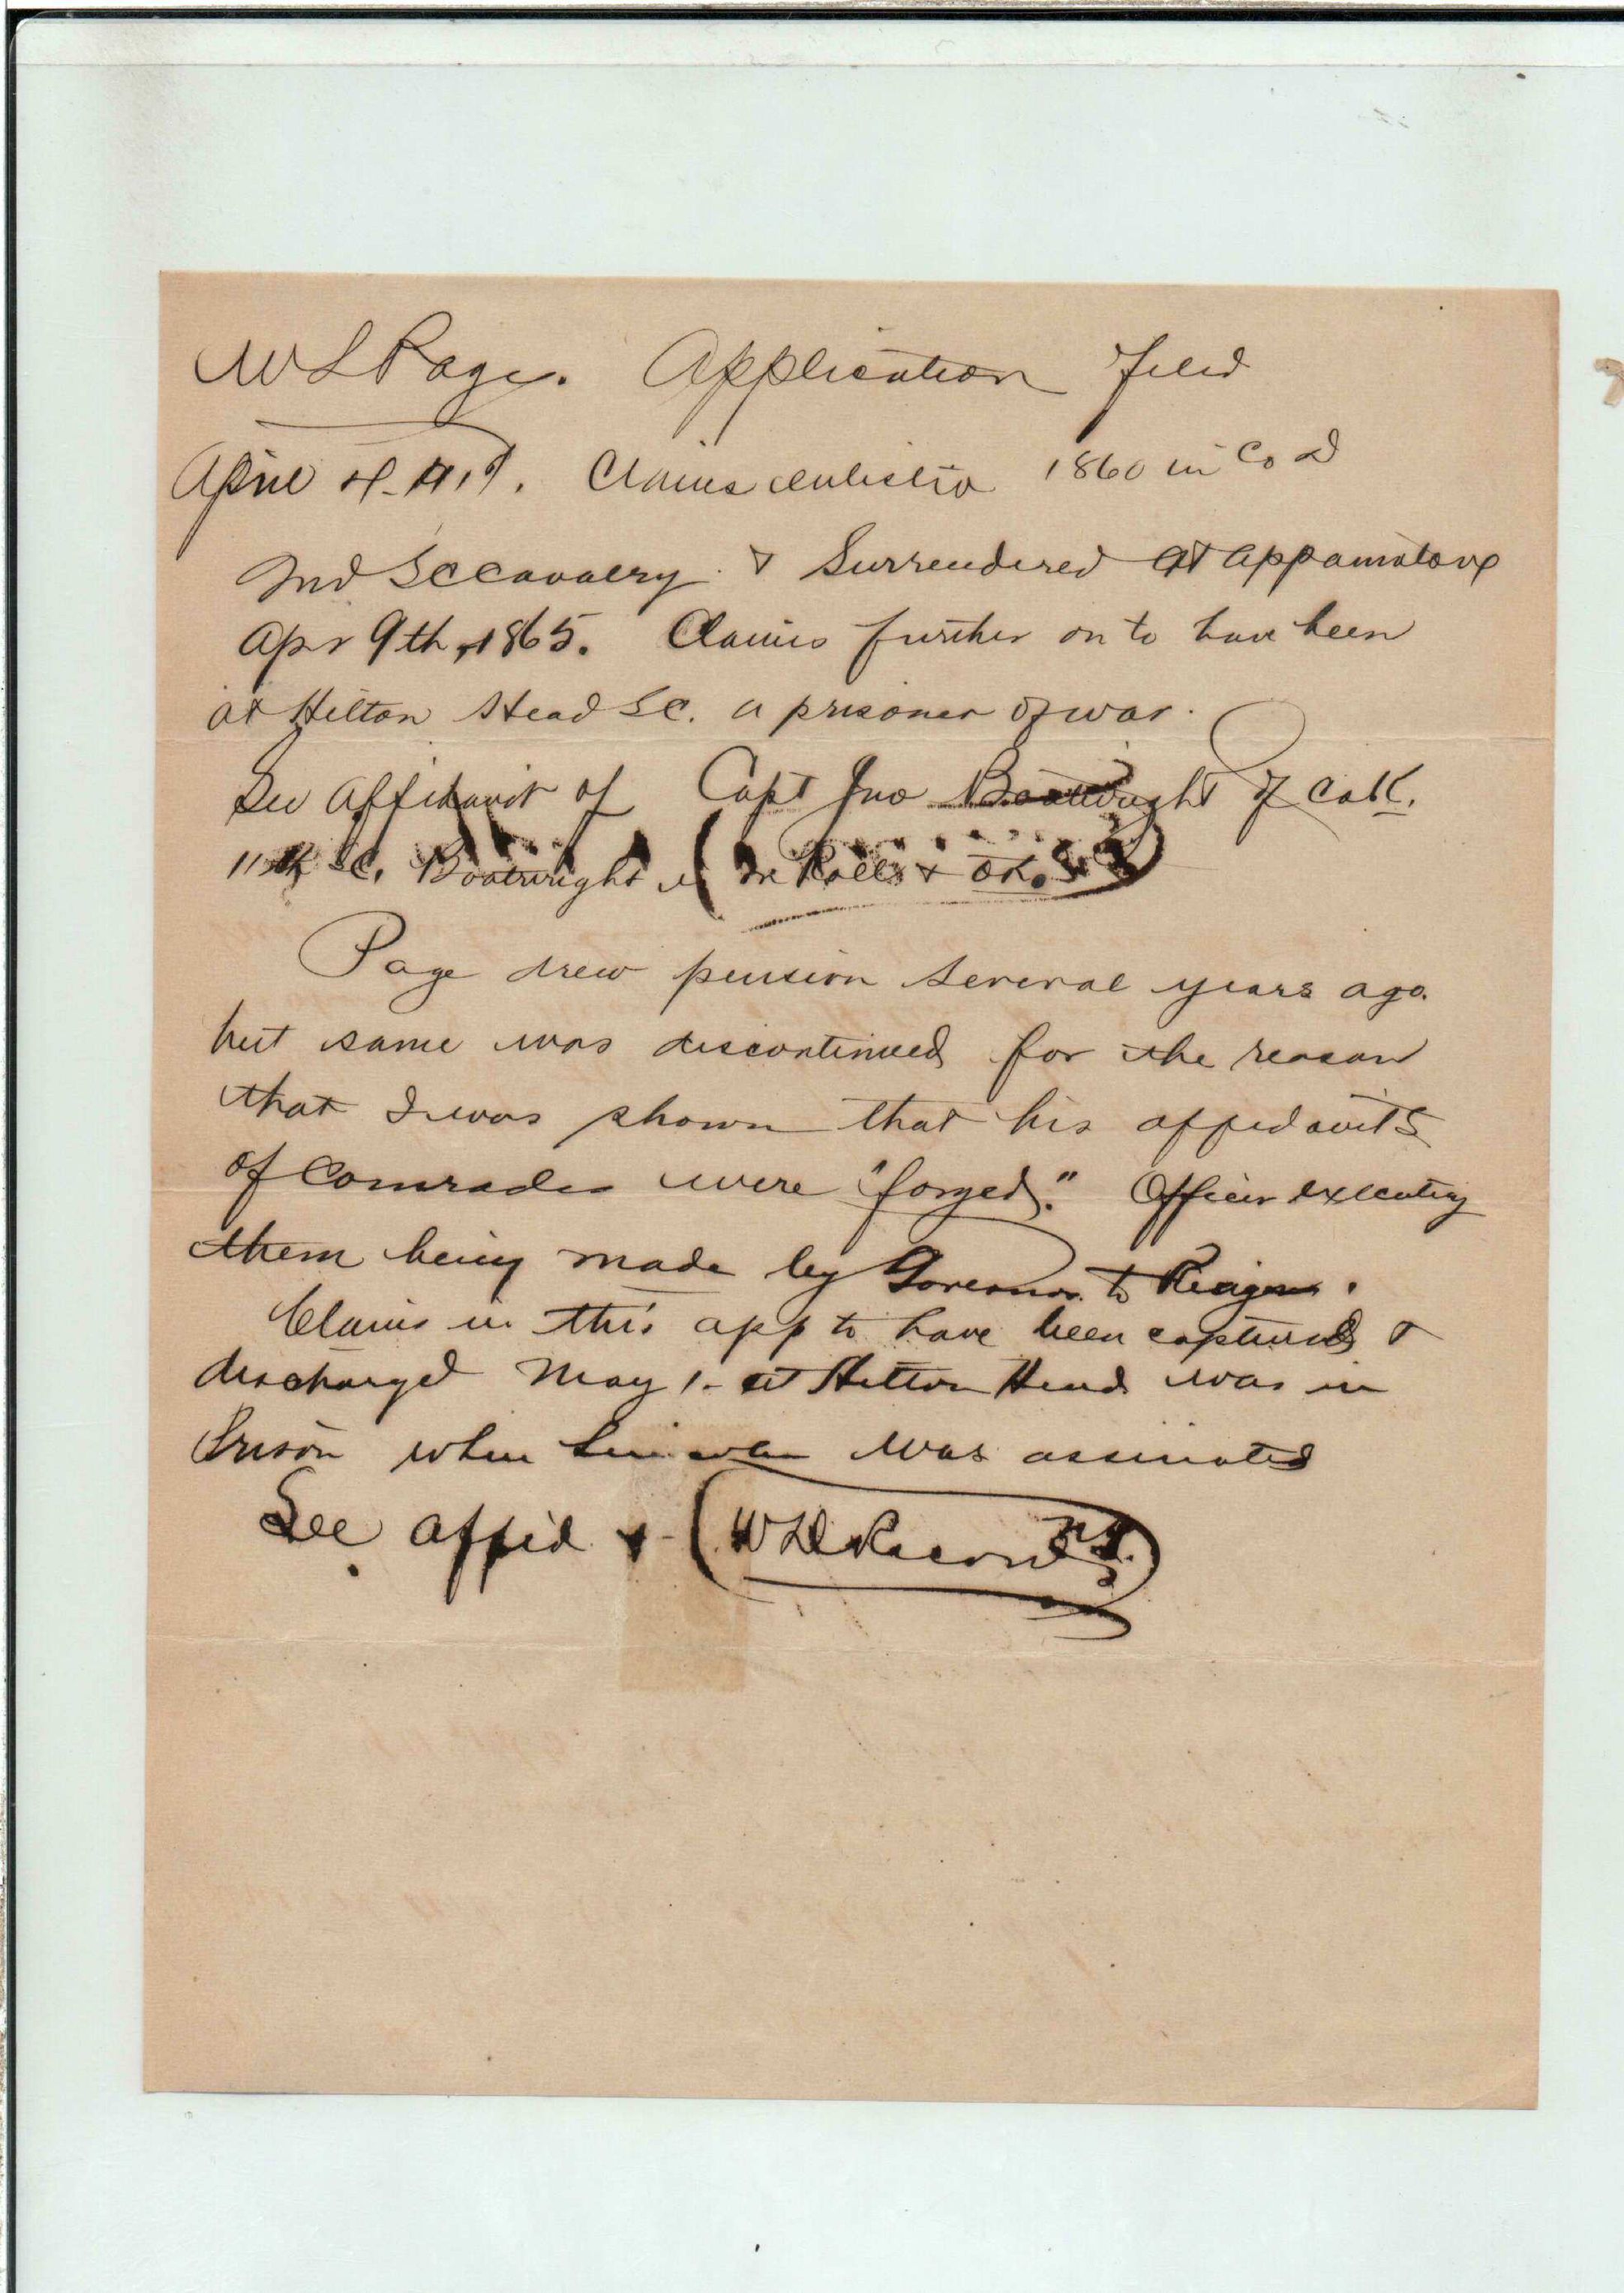 W L Page. Application filed
April 4- 19. Claims enlistin 1860 in Co D
2nd SC Cavalry & Surrendered at Appamatox
Apr 9th, 1865. Claims further on to have been
at Hilton Head SC. a prisoner of war.
See Affidavit of Capt Jno Boatwright of Co K.
11th SC. Boatwright is on Rolls & OK.
Page drew pension several years ago.
but same was discontinued for the reason
that I was shown that his affidavits
of Comrades were "forged." Officer executing
them being made by Governor to Resign.
Claims in this app to have been captured &
discharged May 1- at Hilton Head was in
Prison when Lincoln was assinated
See affid &